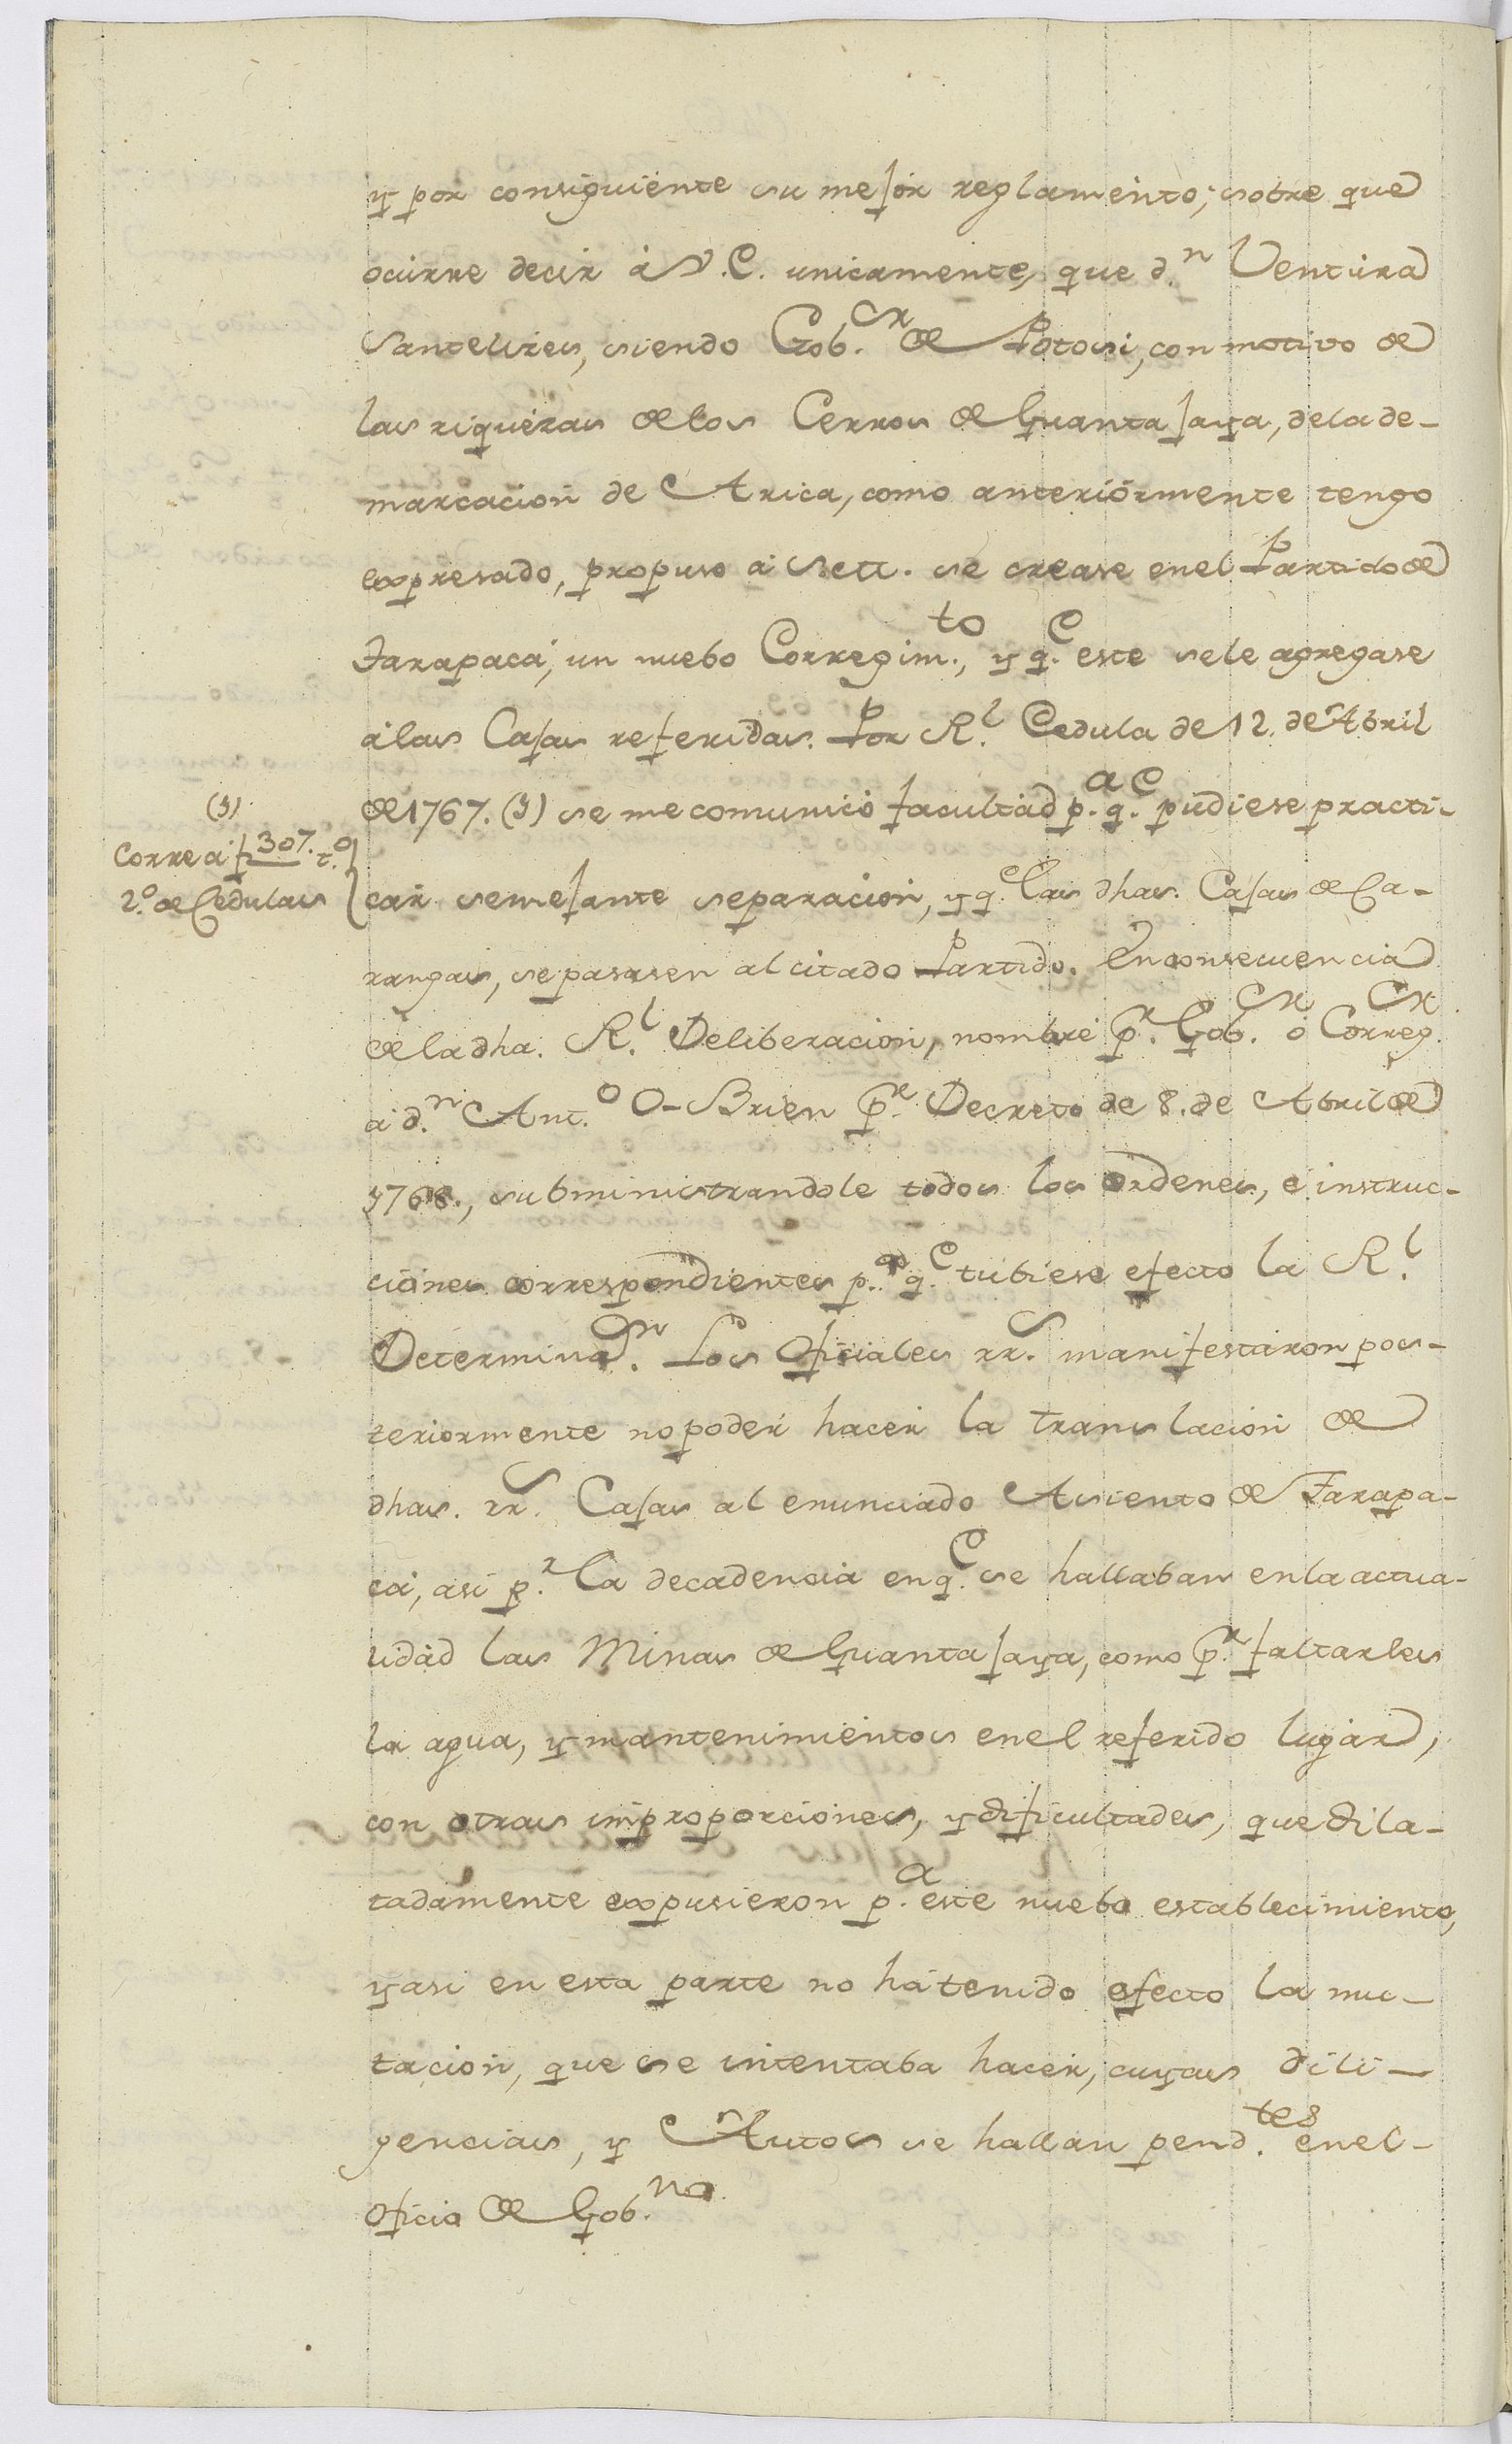 y por consiguiente su mejor reglamento; sobre que
ocurre decir à V.E. unicamente, que d.n Ventura
Santelizes, siendo Gob.or de Potosi, con motivo de
las riquezas delos Cerros de Guantajaya, dela de-
marcacion de Arica, como anteriormente tengo
expresado, propuso à S.M. se crease enel Partido de
Tarapacá, un nuebo Corregim.to, y q.e este sele agregase
àlas Cajas referidas. Por R.l Cedula de 12. de Abril
(3)
de 1767. (3) se me comunicó facultad p.a q.e pudiese practi-
Corre à f 307. t.o
2.o de Cedulas
car semejante separacion, y q.e las dhas. Cajas de Ca-
rangas, se pasasen al citado Partido. En consecuencia
de la dha. R.l Deliberacion, nombré p.r Gob.or ó Correg.or
a d.n Ant.o O-Brien p.r Decreto de 8. de Abril de
1768., subministrandole todos los ordenes, é instruc-
ciones correspondientes p.a q.e tubiese efecto la R.l
Determinaz.on. Los Oficiales rr.s manifestaron pos-
teriormente no poder hacer la translacion de
dhas. rr.s Cajas al enunciado Asiento de Tarapa-
cá, asi p.r la decadencia en q.e se hallaban en la actua-
lidad las Minas de Guantajaya, como p.r faltarles
la agua, y mantenimientos enel referido lugar,
con otras improporciones, y dificultades, que dila-
tadamente expusieron p.a este nuebo establecimiento,
y asi en esta parte no há tenido efecto la mu-
tacion, que se intentaba hacer, cuyas dili-
gencias, y Autos se hallan pend.tes enel-
oficio de Gob.no